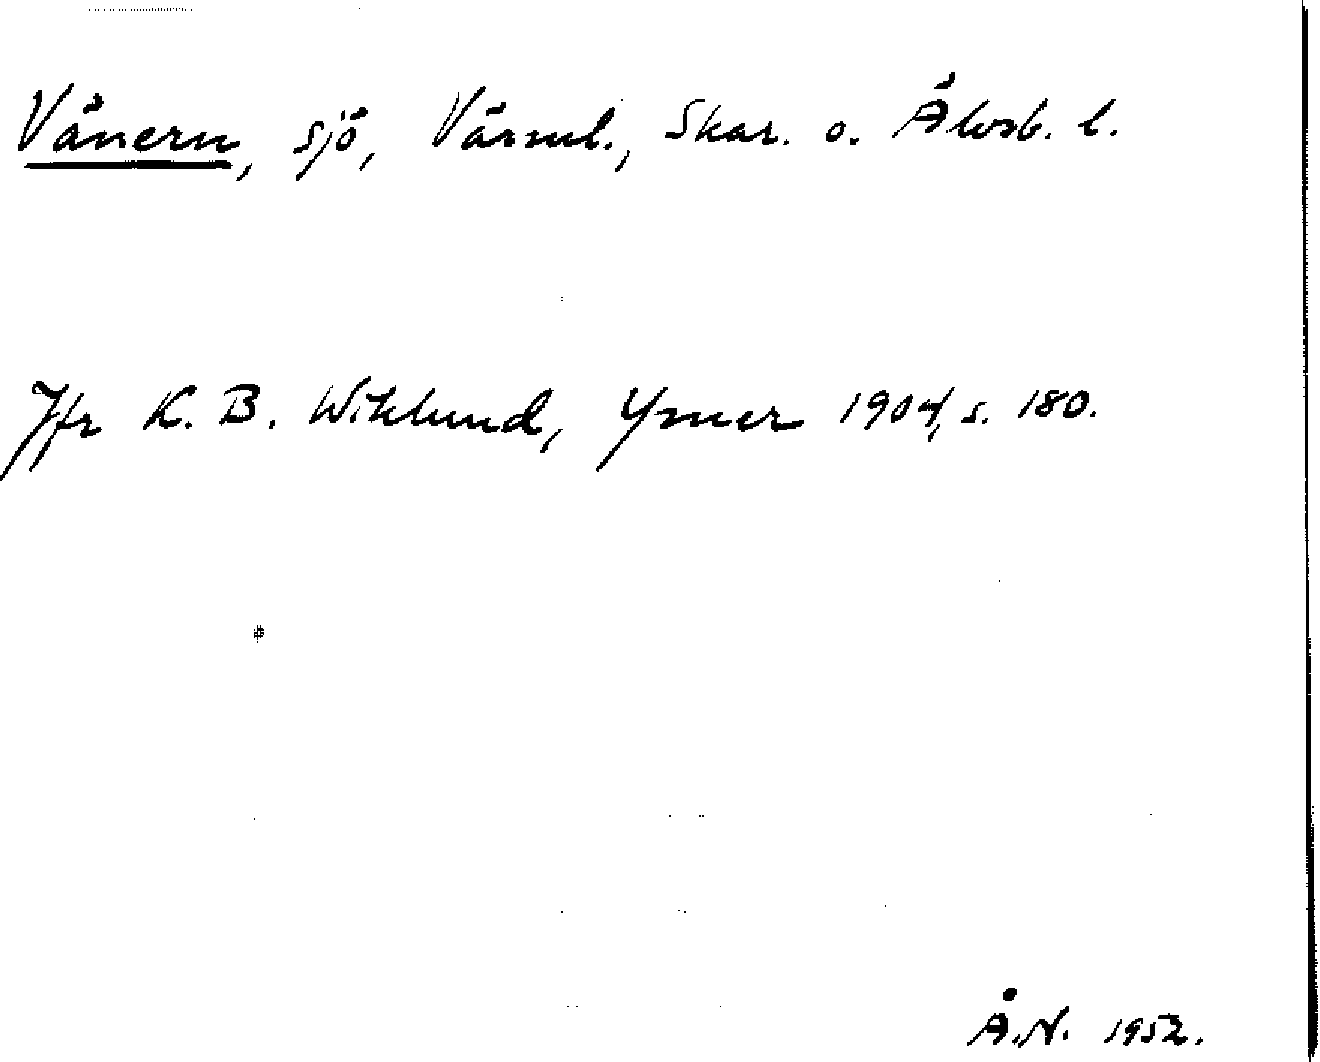 Vänern, sjö, Värml., Skar. o. Älvsb. l.
Jfr K. B. Wiklund, Ymer 1904, s. 180.
Å.N. 1952.